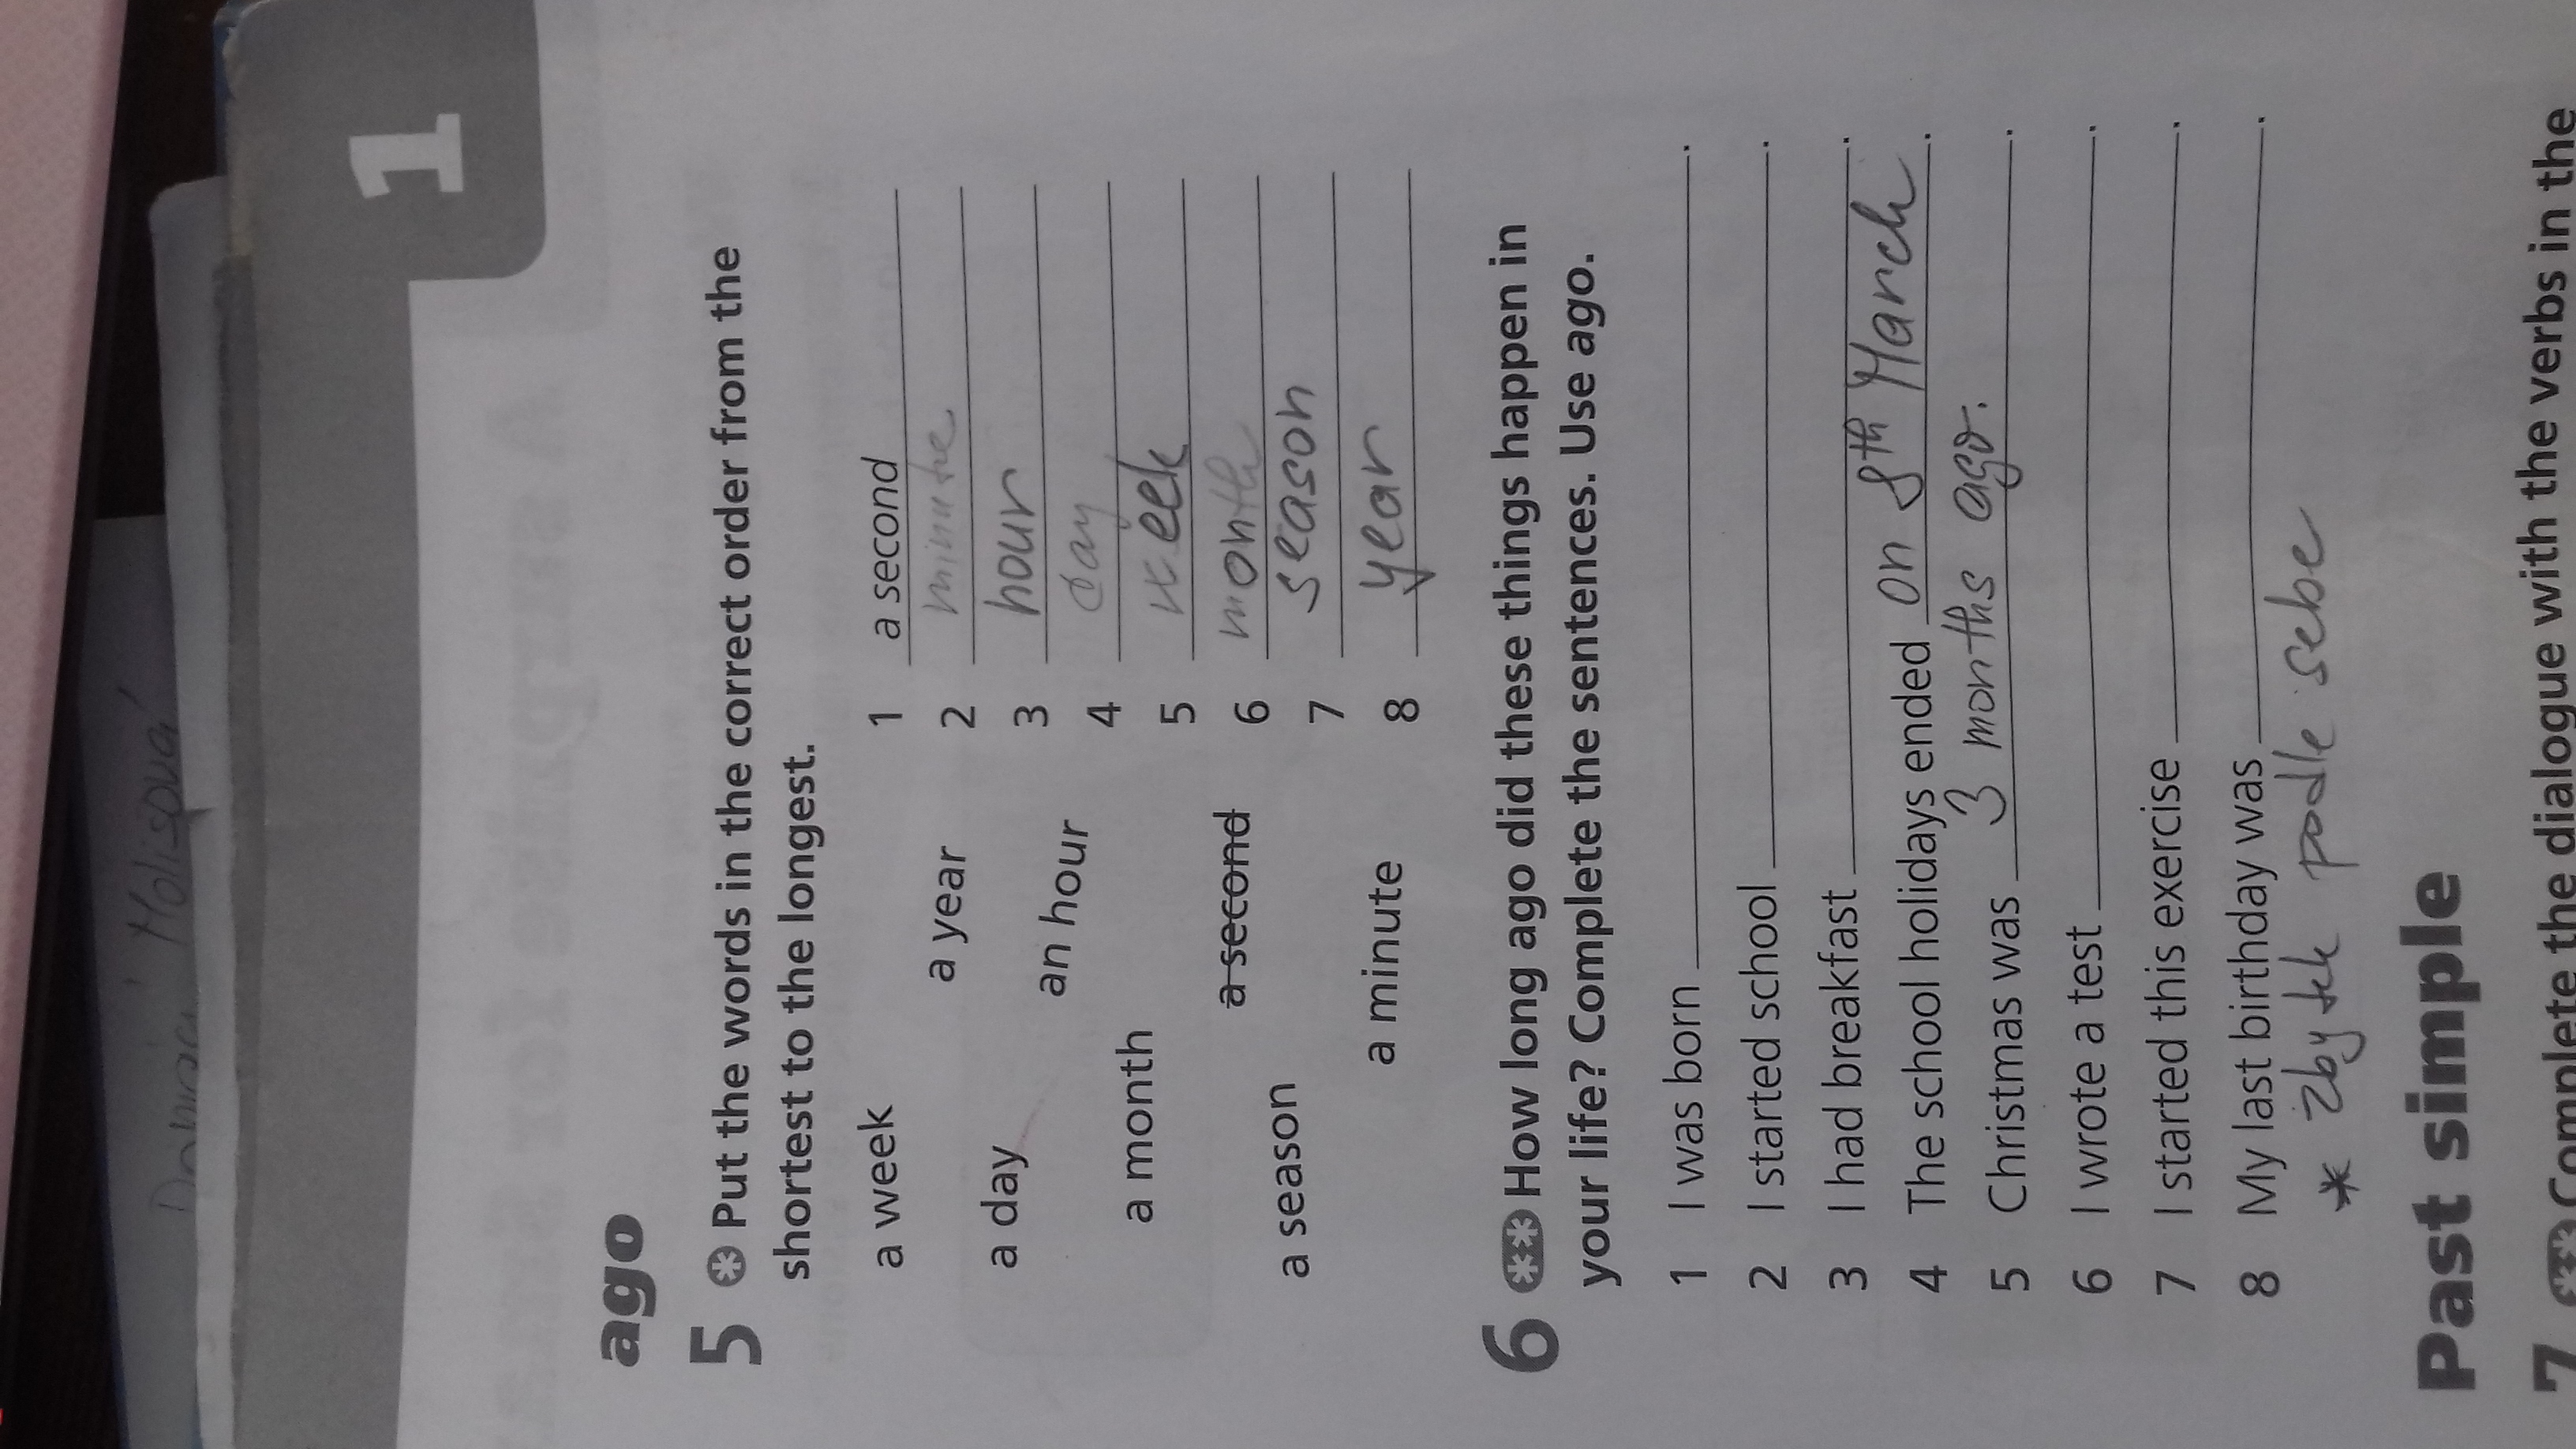 1
ago
5 Put the words in the correct order from the
shortest to the longest.
a week
a year
a day
an hour
a month
a second
a season
a minute
1 a second
2 minute
3 hour
4 day
5 week
6 month
7 season
8 year
6 How long ago did these things happen in
your life? Complete the sentences. Use ago.
1 I was born .
2 I started school .
3 I had breakfast .
4 The school holidays ended on 8th March.
5 Christmas was 3 months ago. .
6 I wrote a test .
7 I started this exercise .
8 My last birthday was .
* zbytek podle sebe
Past simple
7 Complete the dialogue with the verbs in the